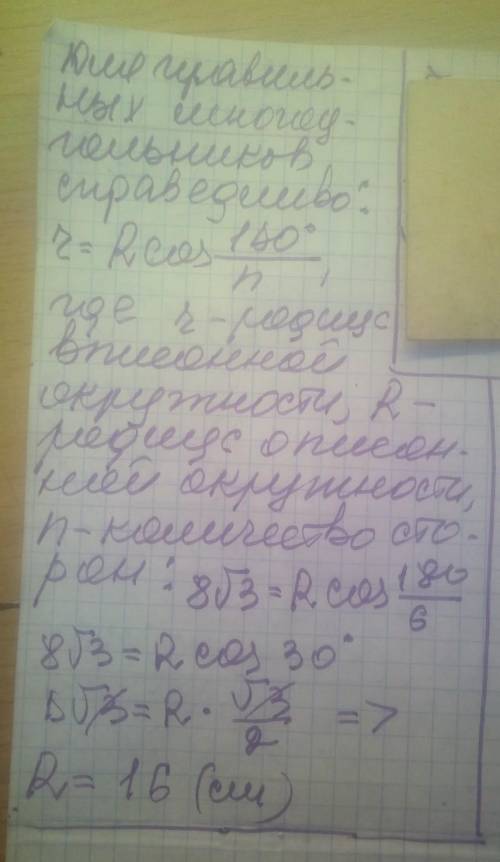 Для правиль-
ных многоу-
гольников
справедливо:
r = R cos 180°/n ,
где r - радиус
вписанной
окружности, R -
радиус описан-
ной окружности,
n - количество сто-
рон: 8√3 = R cos 180/6
8√3 = R cos 30°
8√3 = R · √3/2 =>
R = 16 (см)